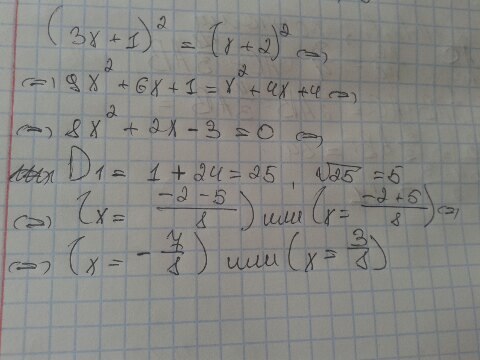 (3x+1)² = (x+2)² <=>
<=> 9x² + 6x + 1 = x² + 4x + 4 <=>
<=> 8x² + 2x - 3 = 0 <=>
D₁ = 1 + 24 = 25, √25 = 5
<=> (x = (-2-5)/8) или (x = (-2+5)/8) <=>
<=> (x = -7/8) или (x = 3/8)